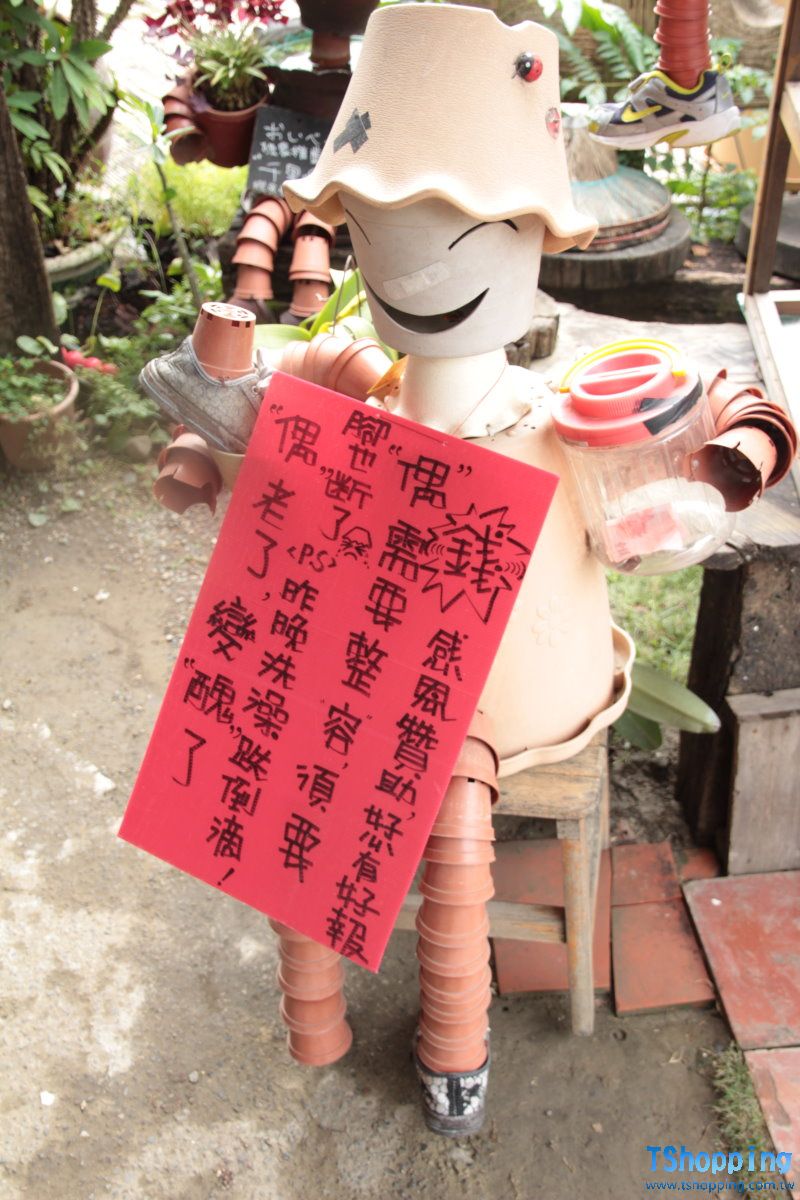 "偶"老了,變"醜"了
腳也"斷"了<PS>昨晚洗澡"跌倒滴!
"偶"需要整"容",須要
錢 感風贊助,好心有好報
千里
TShopping
www.tshopping.com.tw